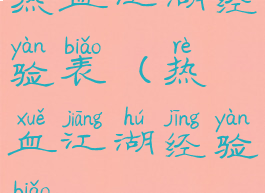 热血江湖经
yàn biǎo rè
验表(热
xuě jiāng hú jīng yàn
血江湖经验
biǎo